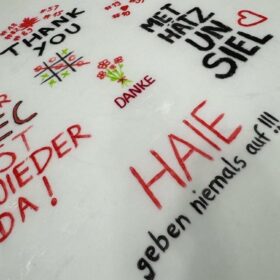 #57
THANK
YOU
DANKE
MET
HÄTZ
UN
SIEL
EC
IST
WIEDER
DA!
HAIE
geben niemals auf!!!